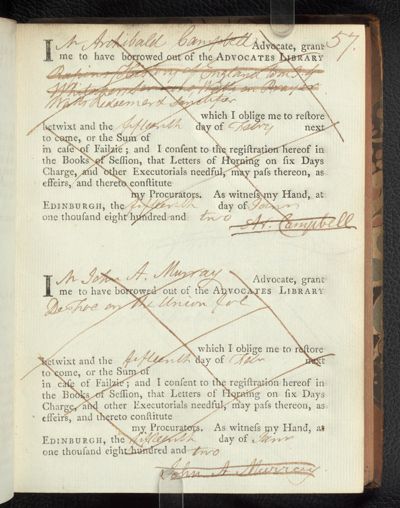 57.
I Mr Archibald Campbell Advocate, grant
me to have borrowed out of the ADVOCATES LIBRARY
Rapin's History of England
which I oblige me to reſtore
betwixt and the fifteenth day of Febry next
to come, or the Sum of
in caſe of Failzie; and I conſent to the regiſtration hereof in
the Books of Seſſion, that Letters of Horning on ſix Days
Charge, and other Executorials needful, may paſs thereon, as
effeirs, and thereto conſtitute
my Procurators. As witneſs my Hand, at
EDINBURGH, the fifteenth day of Janr
one thouſand eight hundred and two
Ar. Campbell
I Mr John A. Murray Advocate, grant
me to have borrowed out of the ADVOCATES LIBRARY
De Foe on the Union fol
which I oblige me to reſtore
betwixt and the fifteenth day of Febr next
to come, or the Sum of
in caſe of Failzie; and I conſent to the regiſtration hereof in
the Books of Seſſion, that Letters of Horning on ſix Days
Charge, and other Executorials needful, may paſs thereon, as
effeirs, and thereto conſtitute
my Procurators. As witneſs my Hand, at
EDINBURGH, the fifteenth day of Janr
one thouſand eight hundred and two
John A Murray